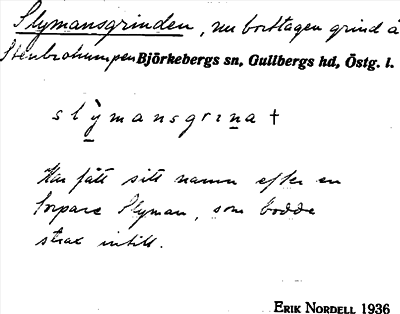 Slymansgrinden, nu borttagen grind å
Stenbrohumpen Björkebergs sn, Gullbergs hd, Östg. l.
slỳmansgrɪna †
Har fått sitt namn efter en
torpare Slyman, som bodde
strax intill.
ERIK NORDELL 1936